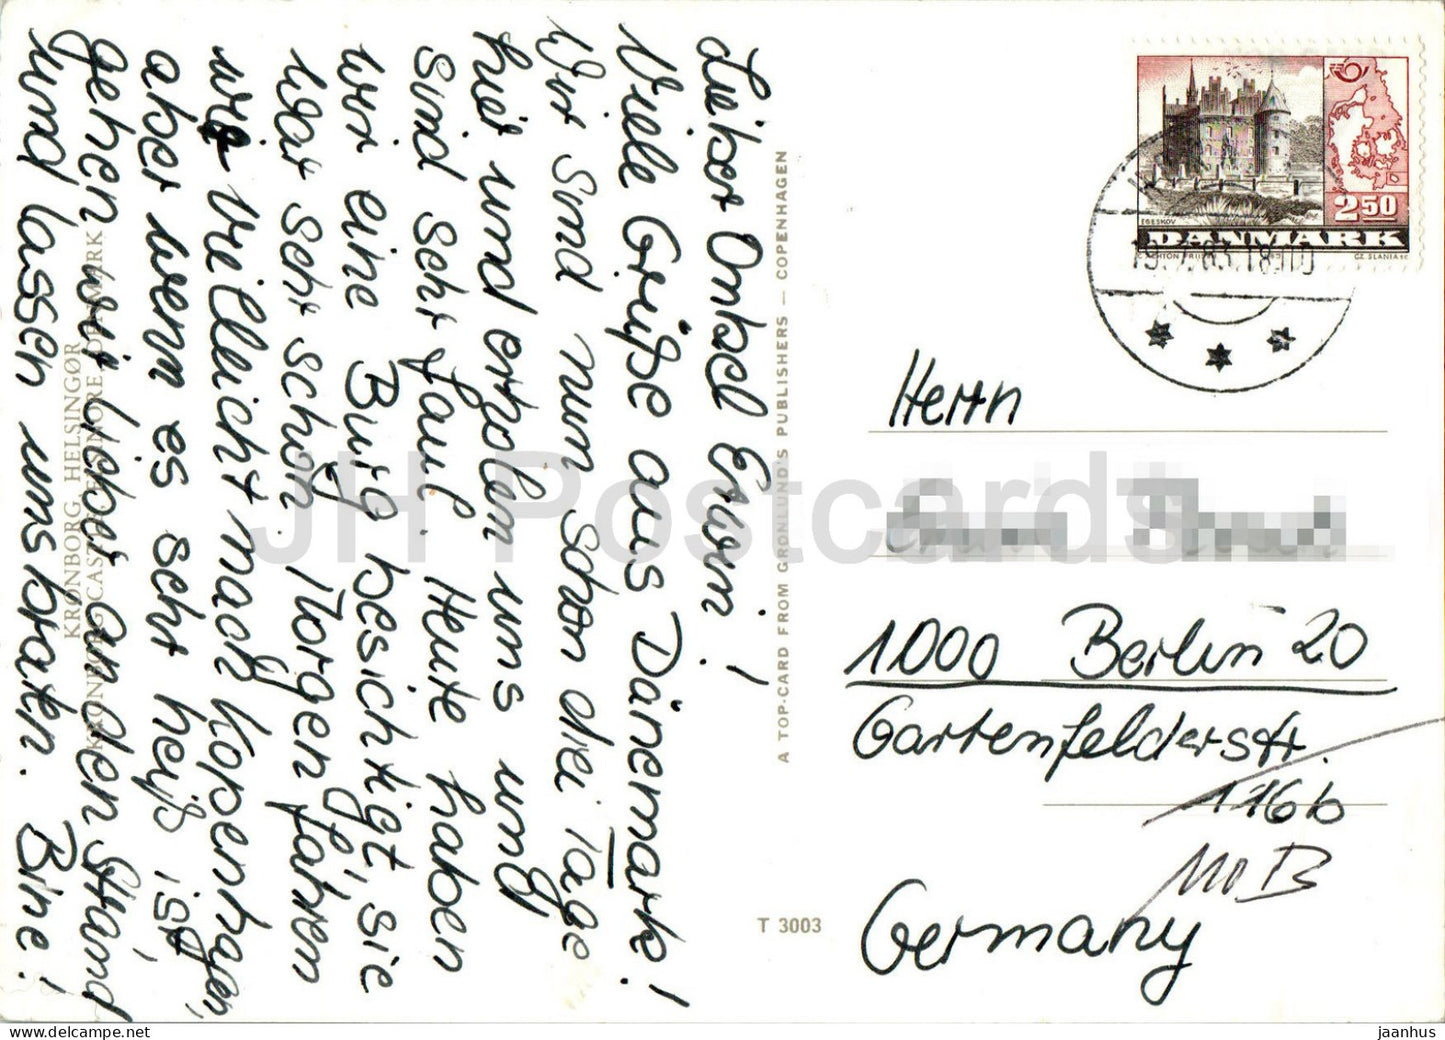 Lieber Onkel Erwin!
Viele Grüße aus Dänemark!
Wir sind nun schon drei Tage
hier und erholen uns und
sind sehr faul. Heute haben
wir eine Burg besichtigt, sie
war sehr schön. Morgen fahren
wir vielleicht nach Kopenhagen,
aber wenn es sehr heiß ist
gehen wir lieber an den Strand
und lassen uns braten. Bine!
KRONBORG, HELSINGØR
KRONBORG CASTLE, ELSINORE, DENMARK
A TOP-CARD FROM GRØNLUND'S PUBLISHERS — COPENHAGEN
T 3003
EGESKOV
2 50
DANMARK
CZ. SLANIA sc
83.18
Herrn
1000 Berlin 20
Gartenfelderstr.
116b
Germany
JH Postcards
jaanhus